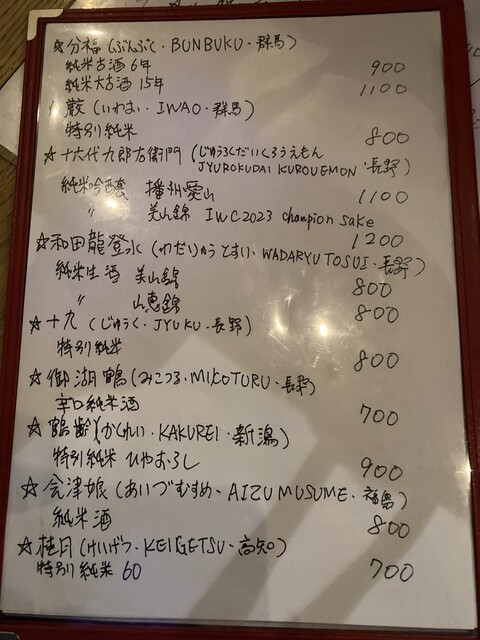 ☆分福(ぶんぶく・BUNBUKU・群馬)
純米古酒6年 900
純米大古酒15年 1100
巌(いわお・IWAO・群馬)
特別純米 800
☆十六代九郎右衛門(じゅうろくだいくろうえもん
JYUROKUDAI KUROUEMON・長野)
純米吟醸 播州愛山 1100
〃 美山錦 IWC2023 champion sake
1200
☆和田龍登水(わだりゅうとすい・WADARYUTOSUI・長野)
純米生酒 美山錦 800
〃 山恵錦 800
☆十九(じゅうく・JYUKU・長野)
特別純米 800
☆御湖鶴(みこつる・MIKOTURU・長野)
辛口純米酒 700
☆鶴齢(かくれい・KAKUREI・新潟)
特別純米 ひやおろし 900
☆会津娘(あいづむすめ・AIZUMUSUME・福島)
純米酒 800
☆桂月(けいげつ・KEIGETSU・高知)
特別純米60 700